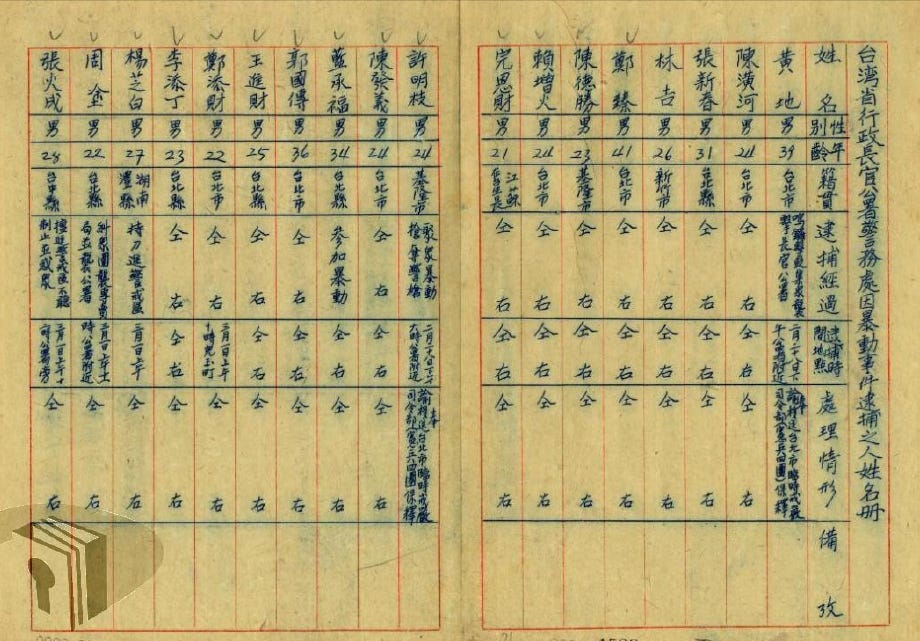 台湾省行政長官公署警务處因暴動事件逮捕之人姓名册
姓名 性别 年齡 籍貫 逮捕經過 逮捕時間地點 處理情形 備攷
黄地 男 39 台北市 鳴鑼擊鼓集衆襲擊長官公署 二月二十八日下午公署附近 奉諭移送台北市臨時戒嚴司令部(憲兵四團)保釋
陳潢河 男 24 台北市 仝右 仝右 仝右
張新春 男 31 台北縣 仝右 仝右 仝右
林吉 男 26 新竹市 仝右 仝右 仝右
鄭臻 男 41 台北市 仝右 仝右 仝右
陳德勝 男 23 基隆市 仝右 仝右 仝右
賴增火 男 24 台北市 仝右 仝右 仝右
完恩財 男 21 江蘇 仝右 仝右 仝右
許明枝 男 24 基隆市 聚衆暴動搶奪警槍 二月二十八日下午六時公署附近 奉諭移送台北市臨時戒嚴司令部(憲兵四團)保釋
陳發義 男 24 台北市 仝右 仝右 仝右
藍承福 男 34 台北縣 參加暴動 仝右 仝右
郭國傳 男 36 台北市 仝右 仝右 仝右
王進財 男 25 台北縣 仝右 仝右 仝右
鄭添財 男 22 台北市 仝右 三月一日上午十時兒玉町 仝右
李添丁 男 23 台北縣 仝右 仝右 仝右
楊芝白 男 27 湖南澧縣 持刀進警戒區 三月一日上午 仝右
周金 男 22 台北縣 糾衆圍襲專賣局並襲公署 三月一日上午十一時公署附近 仝右
張火成 男 28 台中縣 擅進警戒區不聽制止並感衆 三月一日上午十一時公署旁 仝右